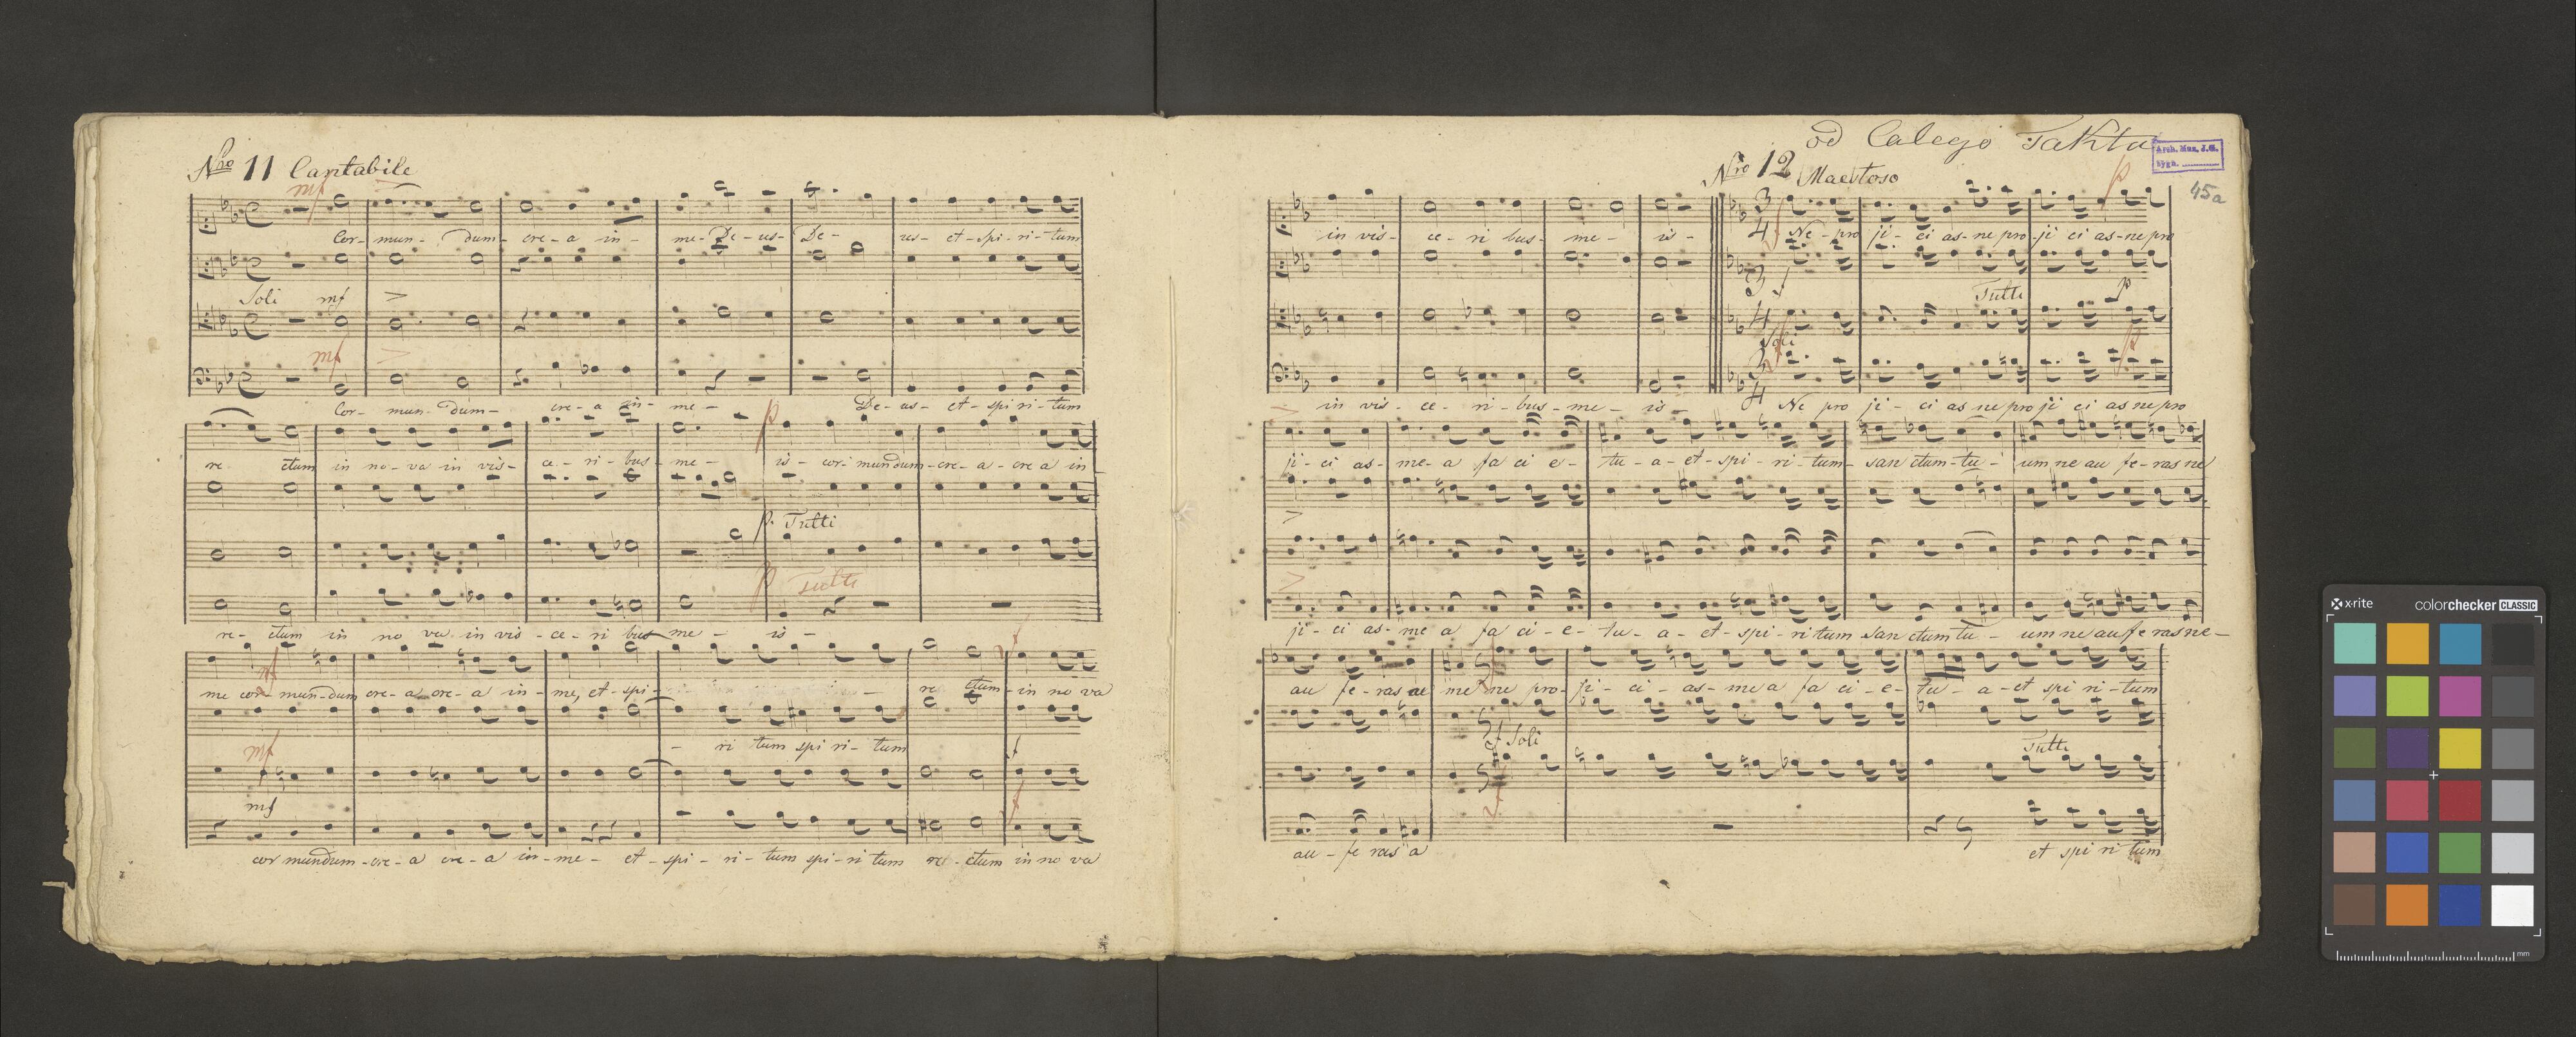 Nro 11 Cantabile
mf
Cor- mun- dum- cre- a in- me- De- us- De- us- et- spi- ri- tum
Soli mf >
mf >
Cor- mun- dum- cre- a in- me- De- us- et- spi ri- tum
p
re ctum in no- va in vis- ce- ri- bus- me- is- cor- mundum- cre- a- cre a in
p. Tutti
p Tutti
re- ctum in no va in vis- ce- ri bus me- is-
mf f
me cor- mun- dum cre- a cre- a in- me, et- spi- - re ctum- in no va
- ri tum spi ri- tum
mf f
mf f
cor mundum- cre- a cre- a in- me- et- spi- ri- tum spi- ri tum re- ctum in no va
od Calego Takta
Arch. Muz. J.G.
sygn.
45a
Nro 12 Maestoso
p
3
4
in vis- ce- ri bus- me- is- Ne- pro ji- ci as- ne pro- ji ci as- ne pro
3
4 f
Tutti p
Soli
p
3
4
in vis- ce- ri- bus- me- is- Ne pro ji- ci as ne pro ji ci as ne pro
>
ji- ci as- me- a fa ci e- tu- a- et- spi- ri- tum- san ctum- tu- um ne au fe- ras ne
>
>
ji- ci as- me a fa ci- e- tu- a- et- spi- ri tum san ctum tu- um ne au fe ras ne-
au fe- ras ae me ne pro- ji- ci- as- me a fa ci- e- tu- a- et spi ri- tum
f Soli Tutti
f
au- fe ras a et spi ri tum
x-rite colorchecker CLASSIC
mm